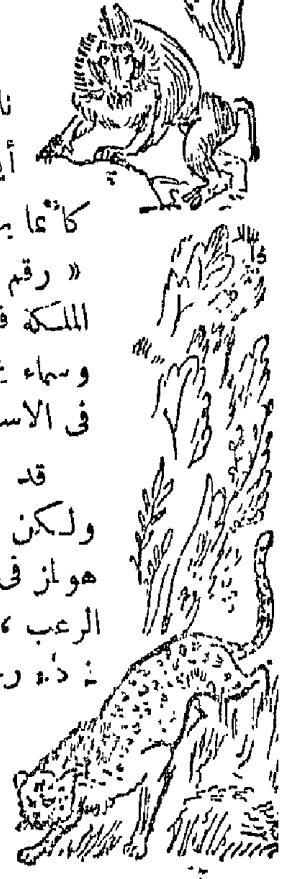 نا
أي
كأنما ي
« رقم
الملكة ف
وسماء
فى الاس
قد
ولكن
هولز فى
الرعب ،